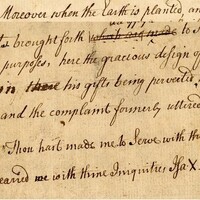 Moreover when the Earth is planted, an
brought forth which are made to S
purposes, here the gracious design of
in there his gifts being perverted,
and the complaint formerly uttered
Thou hast made me to Serve with th
earied me with thine Iniquities Isa X